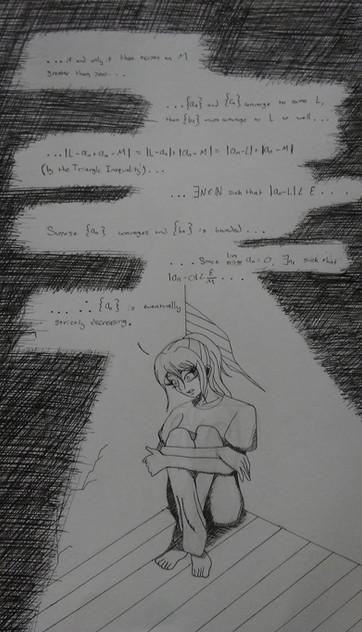 ... if and only if there exists an M
greater than zero...
... {aₙ} and {cₙ} converge to some L,
then {bₙ} must converge to L as well...
... |L-aₙ+aₙ-M| = |L-aₙ|+|aₙ-M| = |aₙ-L|+|aₙ-M|
(by the Triangle Inequality)...
... ∃N∈ℕ such that |aₙ-L|< ε....
Suppose {aₙ} converges and {bₙ} is bounded...
... Since lim aₙ=0, ∃n₁ such that
|aₙ-0|< ε/M....
... ∴ {aₙ} is eventually
strictly decreasing.